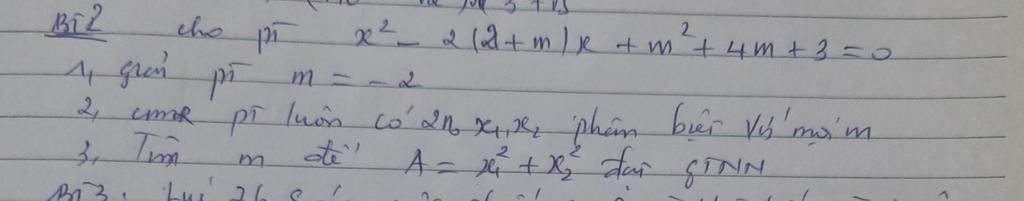 BT2 cho pT x² - 2(2+m)x + m² + 4m + 3 = 0
1, giải pT m = -2
2, cmR pT luôn có 2n₀ x₁, x₂ phân biệt với mọi m
3, Tìm m để A = x₁² + x₂² đạt GTNN
BT3: